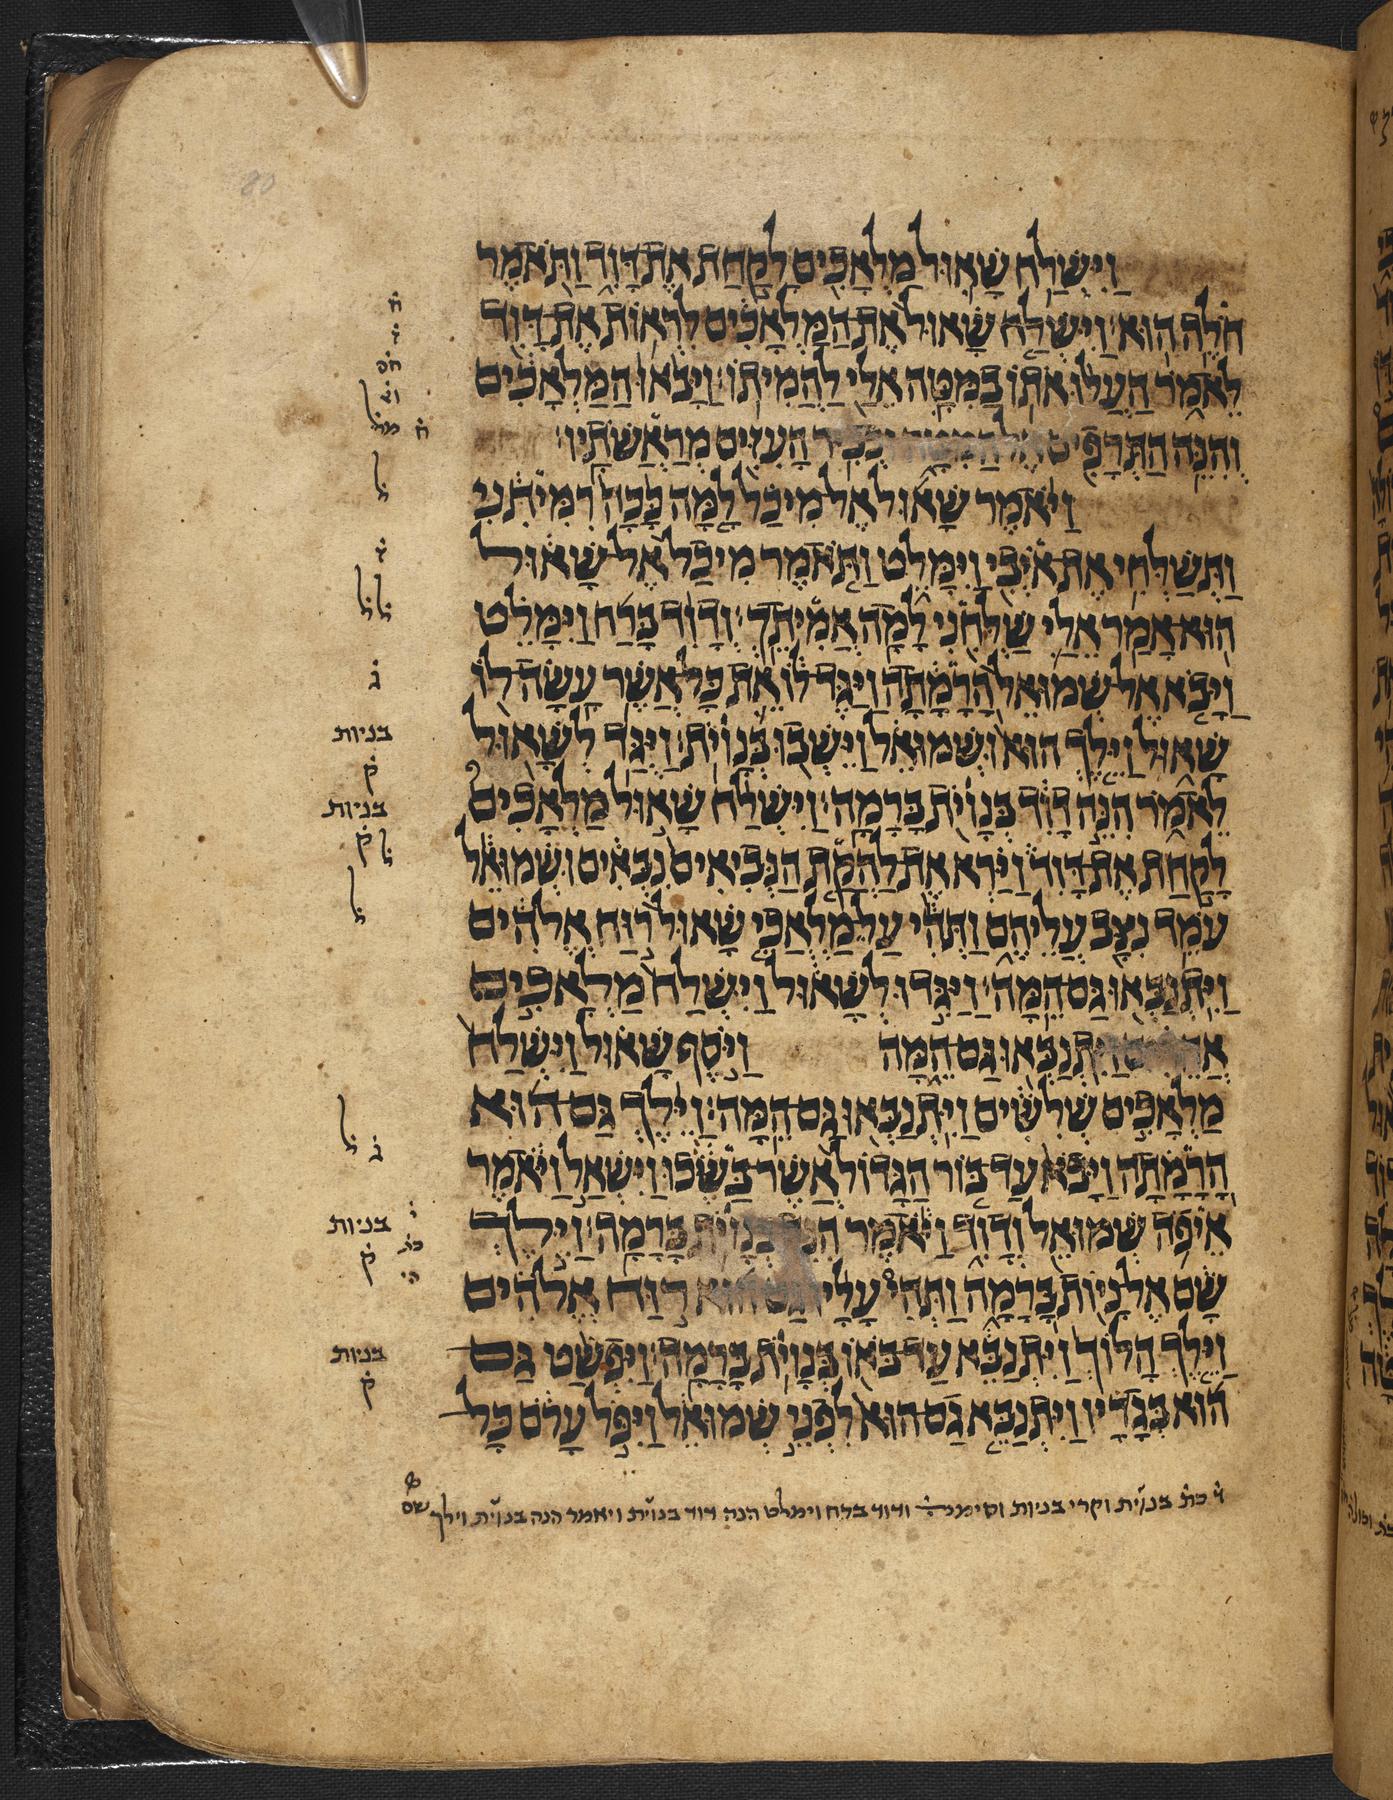 וַיִּשְׁלַח שָׁאוּל מַלְאָכִים לָקַחַת אֶת דָּוִד וַתֹּאמֶר
חֹלֶה הוּא׃ וַיִּשְׁלַח שָׁאוּל אֶת הַמַּלְאָכִים לִרְאוֹת אֶת דָּוִד
לֵאמֹר הַעֲלוּ אֹתוֹ בַמִּטָּה אֵלַי לַהֲמִיתוֹ׃ וַיָּבֹאוּ הַמַּלְאָכִים
וְהִנֵּה הַתְּרָפִים אֶל הַמִּטָּה וּכְבִיר הָעִזִּים מְרַאֲשֹׁתָיו׃
וַיֹּאמֶר שָׁאוּל אֶל מִיכַל לָמָּה כָּכָה רִמִּיתִנִי
וַתְּשַׁלְּחִי אֶת אֹיְבִי וַיִּמָּלֵט וַתֹּאמֶר מִיכַל אֶל שָׁאוּל
הוּא אָמַר אֵלַי שַׁלְּחִנִי לָמָה אֲמִיתֵךְ׃ וְדָוִד בָּרַח וַיִּמָּלֵט
וַיָּבֹא אֶל שְׁמוּאֵל הָרָמָתָה וַיַּגֶּד לוֹ אֵת כָּל אֲשֶׁר עָשָׂה לוֹ
שָׁאוּל וַיֵּלֶךְ הוּא וּשְׁמוּאֵל וַיֵּשְׁבוּ בְּנָוֹיִת׃ וַיֻּגַּד לְשָׁאוּל
לֵאמֹר הִנֵּה דָוִד בְּנָוֹיִת בָּרָמָה׃ וַיִּשְׁלַח שָׁאוּל מַלְאָכִים
לָקַחַת אֶת דָּוִד וַיַּרְא אֶת לַהֲקַת הַנְּבִיאִים נִבְּאִים וּשְׁמוּאֵל
עֹמֵד נִצָּב עֲלֵיהֶם וַתְּהִי עַל מַלְאֲכֵי שָׁאוּל רוּחַ אֱלֹהִים
וַיִּתְנַבְּאוּ גַּם הֵמָּה׃ וַיַּגִּדוּ לְשָׁאוּל וַיִּשְׁלַח מַלְאָכִים
וַיִּתְנַבְּאוּ גַּם הֵמָּה וַיֹּסֶף שָׁאוּל וַיִּשְׁלַח
מַלְאָכִים שְׁלִשִׁים וַיִּתְנַבְּאוּ גַּם הֵמָּה׃ וַיֵּלֶךְ גַּם הוּא
הָרָמָתָה וַיָּבֹא עַד בּוֹר הַגָּדוֹל אֲשֶׁר בַּשֶּׂכוּ וַיִּשְׁאַל וַיֹּאמֶר
אֵיפֹה שְׁמוּאֵל וְדָוִד וַיֹּאמֶר הִנֵּה בְּנָוֹיִת בָּרָמָה׃ וַיֵּלֶךְ
שָׁם אֶל נָיוֹת בָּרָמָה וַתְּהִי עָלָיו גַּם הוּא רוּחַ אֱלֹהִים
וַיֵּלֶךְ הָלוֹךְ וַיִּתְנַבֵּא עַד בֹּאוֹ בְּנָוֹיִת בָּרָמָה׃ וַיִּפְשַׁט גַּם
הוּא בְּגָדָיו וַיִּתְנַבֵּא גַם הוּא לִפְנֵי שְׁמוּאֵל וַיִּפֹּל עָרֹם כָּל
בניות
ק
בניות
ק
ג
ב
בניות
ק
בניות
ק
כת בנוית וקרי בניות וסימניה ודוד ברח וימלט הנה דוד בנוית ויאמר הנה בנוית וילך שם